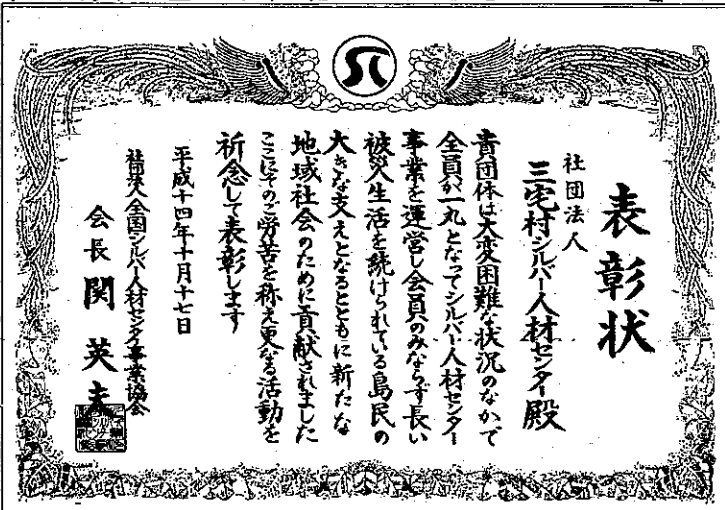 表彰状
社団法人
三宅村シルバー人材センター殿
貴団体は大変困難な状況のなかで
全員が一丸となってシルバー人材センター
事業を運営し会員のみならず長い
被災生活を続けられている島民の
大きな支えとなるとともに新たな
地域社会のために貢献されました
ここにそのご労苦を称え更なる活動を
祈念して表彰します
平成十四年十月十七日
社団法人全国シルバー人材センター事業協会
会長 関 英夫